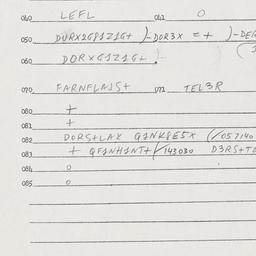 040 LEFL 041 0
050 DURX2G81Z1G+ )-DOR3X = + )-DEG
060 DORXG1Z1G+ !
070 FARNFLAJS+ 071 TEL3R
080 +
081 +
082 DORS+LAX Q1NK8E5X (/057140
083 + QF1NH1NT+(/143030 D3RS+TE
084 0
085 0